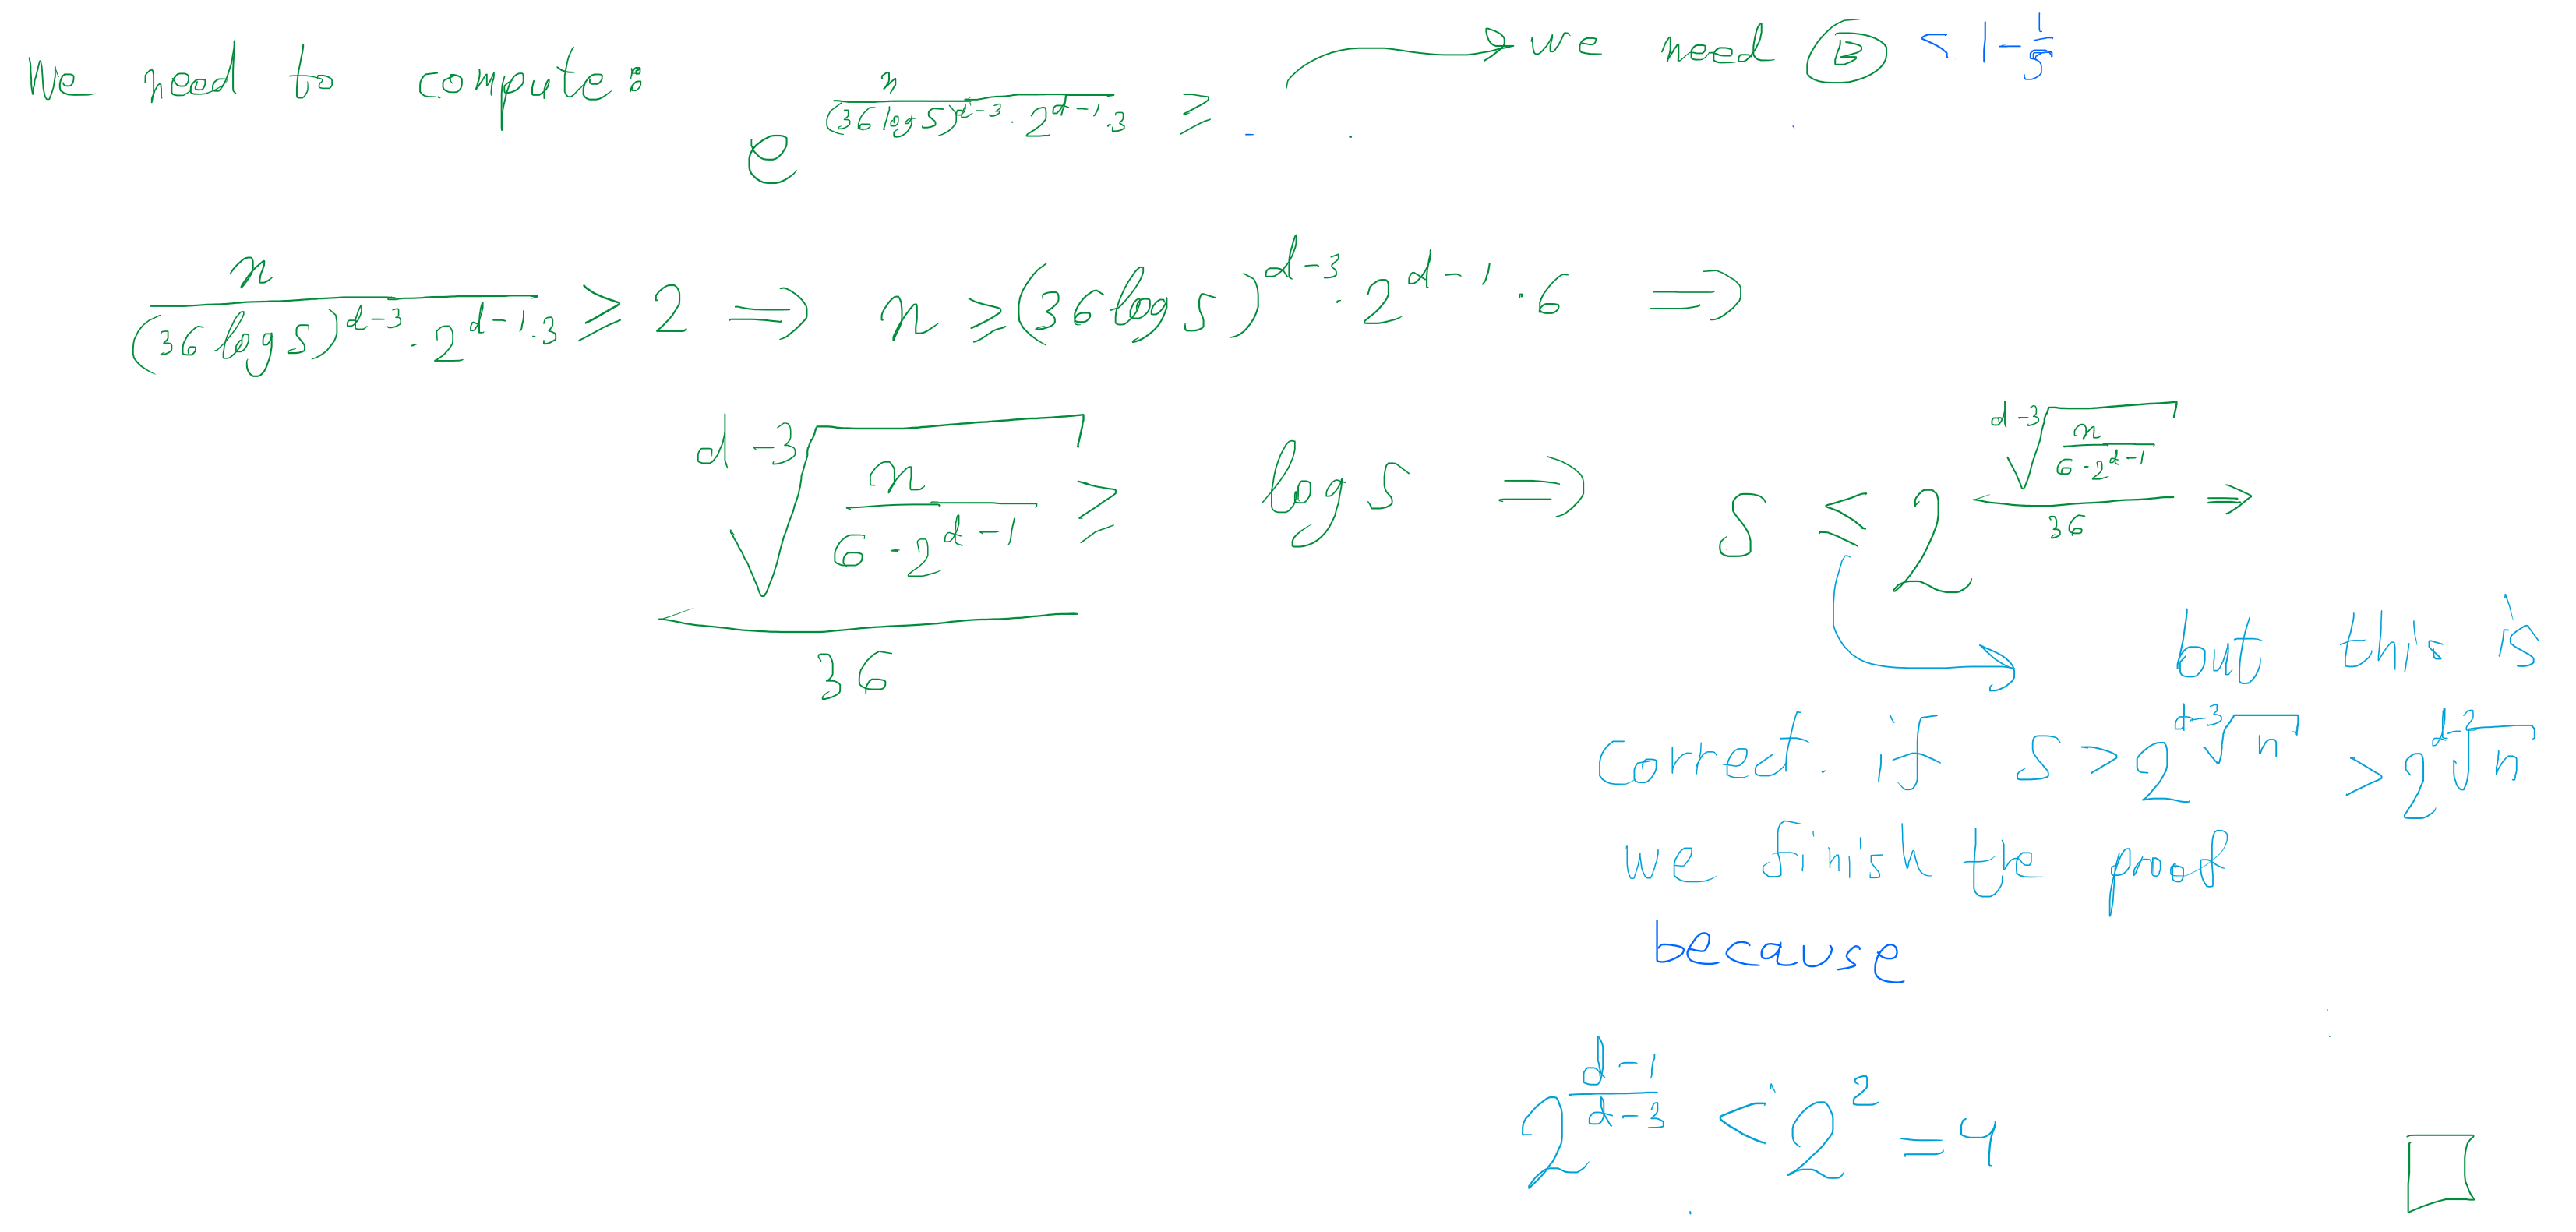 We need to compute: e^{\frac{n}{(36 log S)^{d-3} · 2^{d-1} · 3}} ≥ → we need Ⓑ < 1 - \frac{1}{5}
\frac{n}{(36 log S)^{d-3} · 2^{d-1} · 3} ≥ 2 ⟹ n ≥ (36 log S)^{d-3} · 2^{d-1} · 6 ⟹
\frac{\sqrt[d-3]{\frac{n}{6 · 2^{d-1}}}}{36} ≥ log S ⟹ S ≤ 2^{\frac{\sqrt[d-3]{\frac{n}{6 · 2^{d-1}}}}{36}} ⇒
but this is
correct. if S > 2^{\sqrt[d-3]{n}} > 2^{\sqrt[d-2]{n}}
we finish the proof
because
2^{\frac{d-1}{d-3}} < 2^2 = 4 □